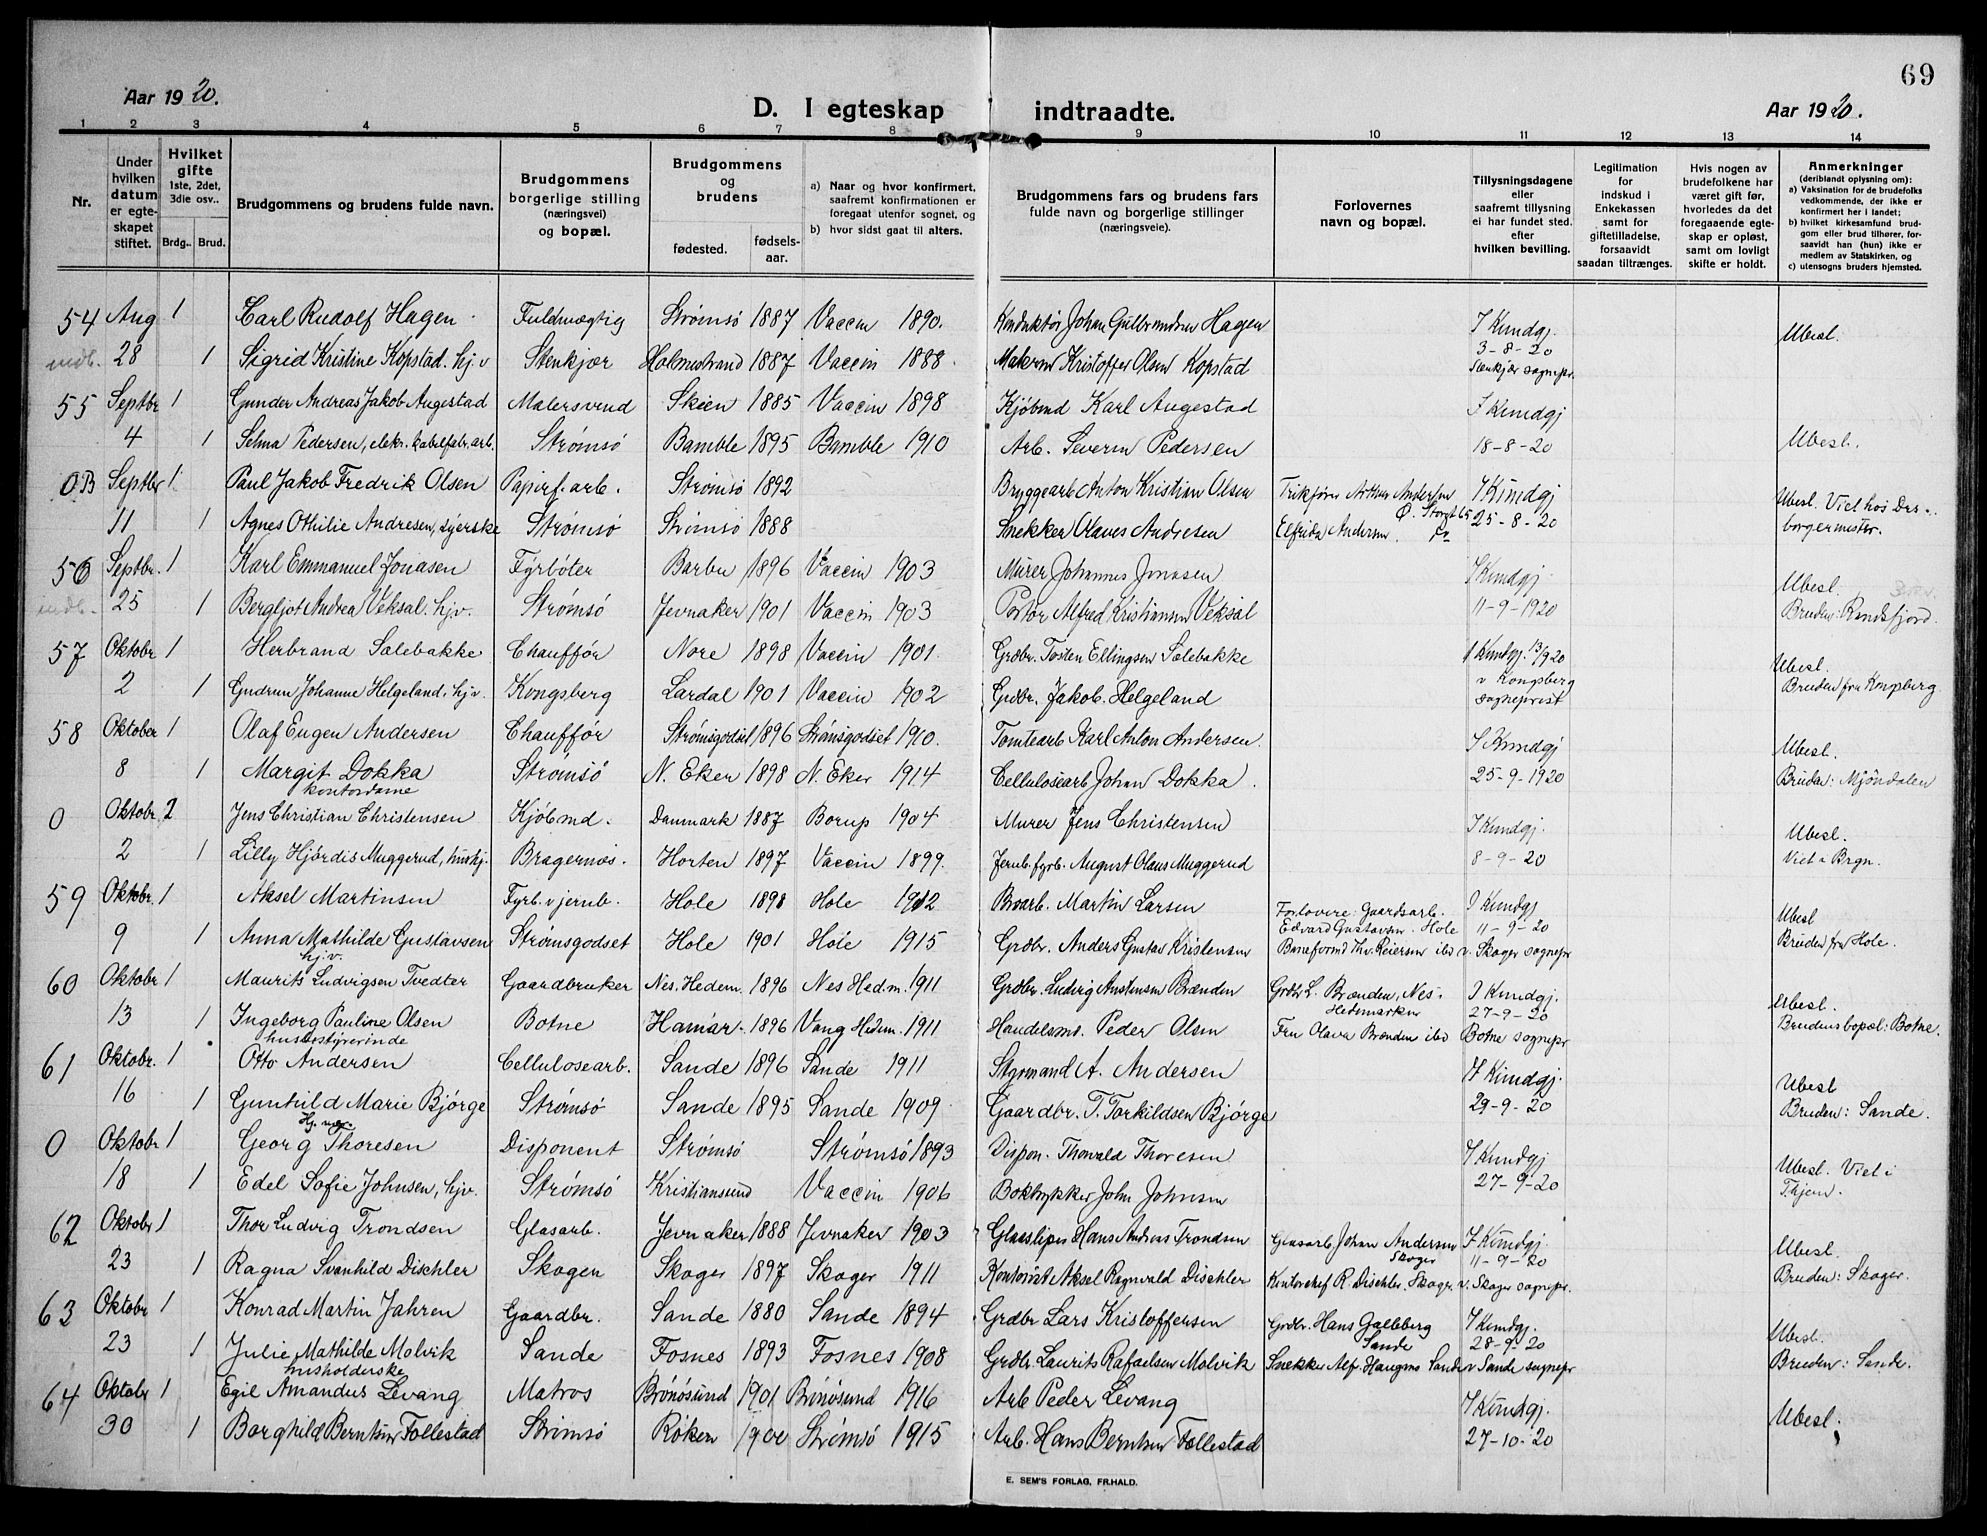 69
Aar 1920.
D. I egteskap indtraadte.
Aar 1920.
1 2 3 4 5 6 7 8 9 10 11 12 13 14
Nr.
Under hvilken datum er egteskapet stiftet.
Hvilket gifte 1ste, 2det, 3die osv..
Brdg.. Brud.
Brudgommens og brudens fulde navn.
Brudgommens borgerlige stilling (næringsvei) og bopæl.
Brudgommens og brudens
fødested. fødselsaar.
a) Naar og hvor konfirmert, saafremt konfirmationen er foregaat utenfor sognet, og
b) hvor sidst gaat til alters.
Brudgommens fars og brudens fars fulde navn og borgerlige stillinger (næringsveie).
Forlovernes navn og bopæl.
Tillysningsdagene eller saafremt tillysning ei har fundet sted. efter hvilken bevilling.
Legitimation for indskud i Enkekassen samt for giftetilladelse, forsaavidt saadan tiltrænges.
Hvis nogen av brudefolkene har været gift før, hvorledes da det foregaaende egteskap er opløst, samt om lovligt skifte er holdt.
Anmerkninger (deriblandt oplysning om):
a) Vaksination for de brudefolks vedkommende, der ikke er konfirmert her i landet;
b) hvilket kirkesamfund brudgom eller brud tilhører, forsaavidt han (hun) ikke er medlem av Statskirken, og
c) utensogns bruders hjemsted.
54 Aug 1 Carl Rudolf Hagen Fuldmægtig Strømsø 1887 Vaccin 1890. Konduktør Johan Gulbrandsen Hagen I Kundgj. Ubesl.
indb. 28 1 Sigrid Kristine Kopstad. hj.v Stenkjær Holmestrand 1887 Vaccin 1888. Kristoffer Olsen Kopstad 3-8-20 Stenkjær sognepr.
55 Septbr 1 Gunder Andreas Jakob Augestad Malersvend Skien 1885 Vaccin 1898 Kjøbmd Karl Augestad I Kundgj
4 1 Selma Pedersen, elektr. kabelfabr. arb. Strømsø Bamble 1895 Bamble 1910 Arb. Severin Pedersen 18-8-20 Ubesl.
0B Septbr 1 Paul Jakob Fredrik Olsen Papirf. arb. Strømsø 1892 Bryggearb Anton Kristian Olsen Arthur Andersen Ø. Storgt 65 I Kundgj Ubesl. Viet hos
11 1 Agnes Othilie Andresen, syerske Strømsø Strømsø 1888 Snekker Olaves Andresen Elfrida Andersen 25-8-20 borgermester.
56 Septbr. 1 Karl Emmanuel Jonasen Fyrbøter Barbu 1896 Vaccin 1903 Murer Johannes Jonasen I Kundgj. Ubesl.
indb. 25 1 Bergljot Andrea Veksal. hjv. Strømsø Jevnaker 1901 Vaccin 1903 Portør Alfred Kristiansen Veksal 11-9-1920 Bruden: Randsfjord.
57 Oktobr 1 Herbrand Sælebakke Chauffør Nore 1898 Vaccin 1901. Grdbr. Tosten Ellingsen Sælebakke I Kundgj. 13/9 20 Ubesl.
2 1 Gudrun Johanne Helgeland, hj.v. Kongsberg Lardal 1901 Vaccin 1902 Grdbr. Jakob. Helgeland v Kongsberg sogneprest Bruden fra Kongsberg.
58 Oktober 1 Olaf Eugen Andersen Chauffør Strømsgodset 1896 Strømsgodset 1910. Tomtearb Karl Anton Andersen. I Kundgj Ubesl.
8 1 Margit Dokka kontordame Strømsø N. Eker 1898 N. Eker 1914 Cellulosearb Johan Dokka. 25-9-1920 Bruden: Mjøndalen
0 Oktobr. 2 Jens Christian Christensen Kjøbmd. Danmark 1887 Borup 1904 Murer Jens Christensen I Kundgj. Ubesl.
2 1 Lilly Hjørdis Muggerud, hushj. Bragernæs. Horten 1897 Vaccin 1899. Jernb. fyrb. August Olaus Muggerud 8-9-20 Viet Brgn.
59 Oktobr. 1 Aksel Martinsen Fyrb. v jernb. Hole 1898 Hole 1912 Broarb. Martin Larsen Forlovere: Gaardsarb. Edvard Gustavsen. Hole I Kundgj 11-9-20 Ubesl
9 1 Anna Mathilde Gustavsen hj.v. Strømsgodset Hole 1901 Hole 1915 Grdbr. Anders Gustav Kristensen Thv. Reiersen ibd v. Skoger sognepr Bruden fra Hole.
60 Oktobr 1 Maurits Ludvigsen Tvedter Gaardbruker Nes. Hedem. 1896 Nes Hed.m. 1911 Grdbr. Ludvig Austensen Brænden Grdbr L. Brænden, Nes. Hedemarken I Kundgj. 27-9-20 Ubesl.
13 1 Ingeborg Pauline Olsen husbestyrerinde Botne Hamar. 1896 Vang Hedem. 1911 Handelsm. Peder Olsen Fru Olava Brænden ibd Botne sognepr Brudens bopæl: Botne.
61 Oktobr. 1 Otto Andersen Cellulosearb. Sande 1896 Sande 1911 Styrmand A. Andersen I Kundgj. Ubesl
16 1 Gunhild Marie Bjørge Strømsø Sande 1895 Sande 1909 Gaardbr. T. Torkildsen Bjørge 29-9-20 Bruden: Sande.
0 Oktobr 1 Georg Thoresen Disponent Strømsø Strømsø 1893 Dispon. Thorvald Thoresen I Kundgj Ubesl. Viet i
18 1 Edel Sofie Johnsen, hjv. Strømsø Kristiansund Vaccin 1906 Boktrykker John Johnsen 27-9-20 Thjem.
62 Oktobr 1 Thor Ludvig Trondsen Glasarb. Jevnaker 1888 Jevnaker 1903 Glassliper Hans Andreas Trondsen Glasarb Johan Andersen Skoger I Kundgj. 11-9-20 Ubesl.
23 1 Ragna Svanhild Dischler Skogen Skoger 1897 Skoger 1911 Kontorist Aksel Ragnvald Dischler Kontorchef R. Dischler. Skoger v. Skoger sognepr. Bruden: Skoger.
63 Oktobr 1 Konrad Martin Jahren Gaardbr. Sande 1880 Sande 1894 Grdbr Lars Kristoffersen Grdbr. Hans Galleberg Sande I Kundgj. 28-9-20 Ubesl.
23 1 Julie Mathilde Molvik husholderske Sande Fosnes 1893 Fosnes 1908 Grdbr. Laurits Rafaelsen Molvik Snekker Alf. Sande v Sande sognepr Bruden: Sande.
64 Oktobr 1 Egil Amandus Levang Matros Brønøsund 1901 Brønøsund 1916 Arb Peder Levang I Kundgj. Ubesl.
30 1 Borghild Berntsen Follestad Strømsø Røken 1900 Strømsø 1915 Arb. Hans Berntsen Follestad 27-10-20
E. SEM'S FORLAG, FR.HALD.